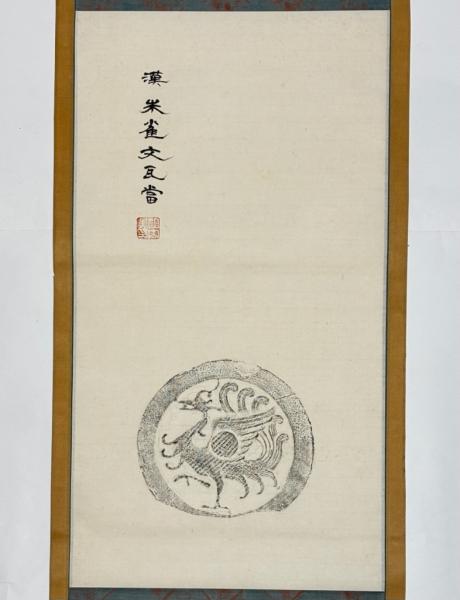 漢朱雀文瓦當